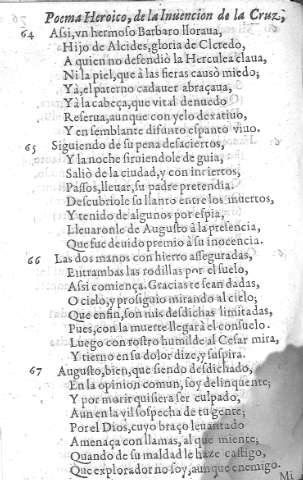 Poema Heroico, de la Inuencion de la Cruz,
64 Assi, vn hermoso Barbaro lloraua,
Hijo de Alcides, gloria de Cleredo,
A quien no defendiò la Herculea claua,
Ni la piel, que à las fieras causò miedo;
Y à, el paterno cadauer abraçaua,
Y à la cabeça, que vital denuedo
Reserua, aunque con yelo
Y en semblante difunto espantò viuo.
65 Siguiendo de su pena desaciertos,
Y la noche siruiendole de guia,
Saliò de la ciudad, y con inciertos
Passos, lleuar, su padre pretendia.
Descubriole su llanto entre los muertos,
Y tenido de algunos por espia,
Lleuaronle de Augusto à la presencia,
Que fue deuido premio à su inocencia.
66 Las dos manos con hierro asseguradas,
Entrambas las rodillas por el suelo,
Assi comiença. Gracias te sean dadas,
O cielo, y prosiguio mirando al cielo;
Que enfin, son mis desdichas limitadas,
Pues, con la muerte llegarà el consuelo.
Luego con rostro humilde al Cesar mira,
Y tierno en su dolor dize, y suspira.
67 Augusto, bien, que siendo desdichado,
En la opinion comun, soy delinquente;
Y por morir quisiera ser culpado,
Aun en la vil sospecha de tu gente;
Por el Dios, cuyo braço leuantado
Amenaça con llamas, al que miente;
Quando de su maldad le haze castigo,
Que explorador no soy, aunque enemigo.
Mi